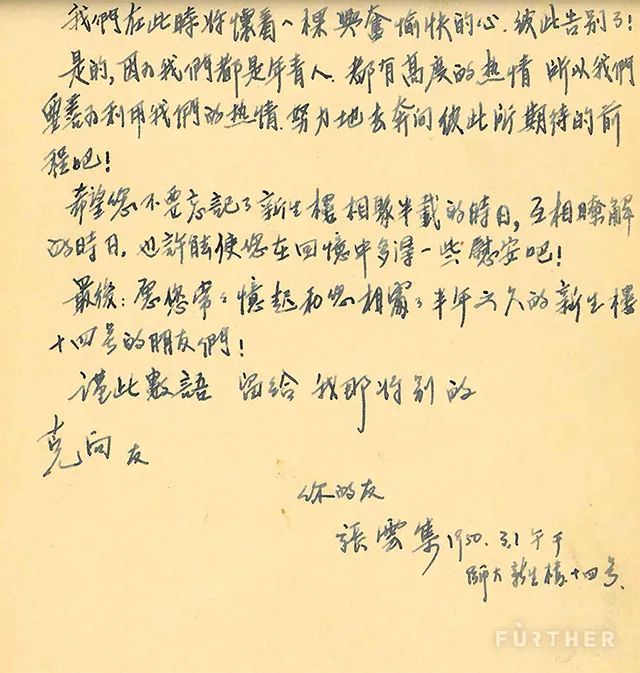 我們在此時將懷着一棵興奮愉快的心.彼此告别了!
是的,因为我們都是年青人.都有高度的热情 所以我們
要善为利用我們的热情.努力地去奔向彼此所期待的前
程吧!
希望您不要忘記了新生樓相聚半載的時日,互相瞭解
的時日.也許能使您在回憶中多得一些慰安吧!
最後:愿您常々憶起和您相處了半年之久的新生樓
十四号的朋友們!
謹此數語 留给我那将别的
克向友
你的友
張雲集1950.3.1午于
師大新生樓十四号.
FÜRTHER